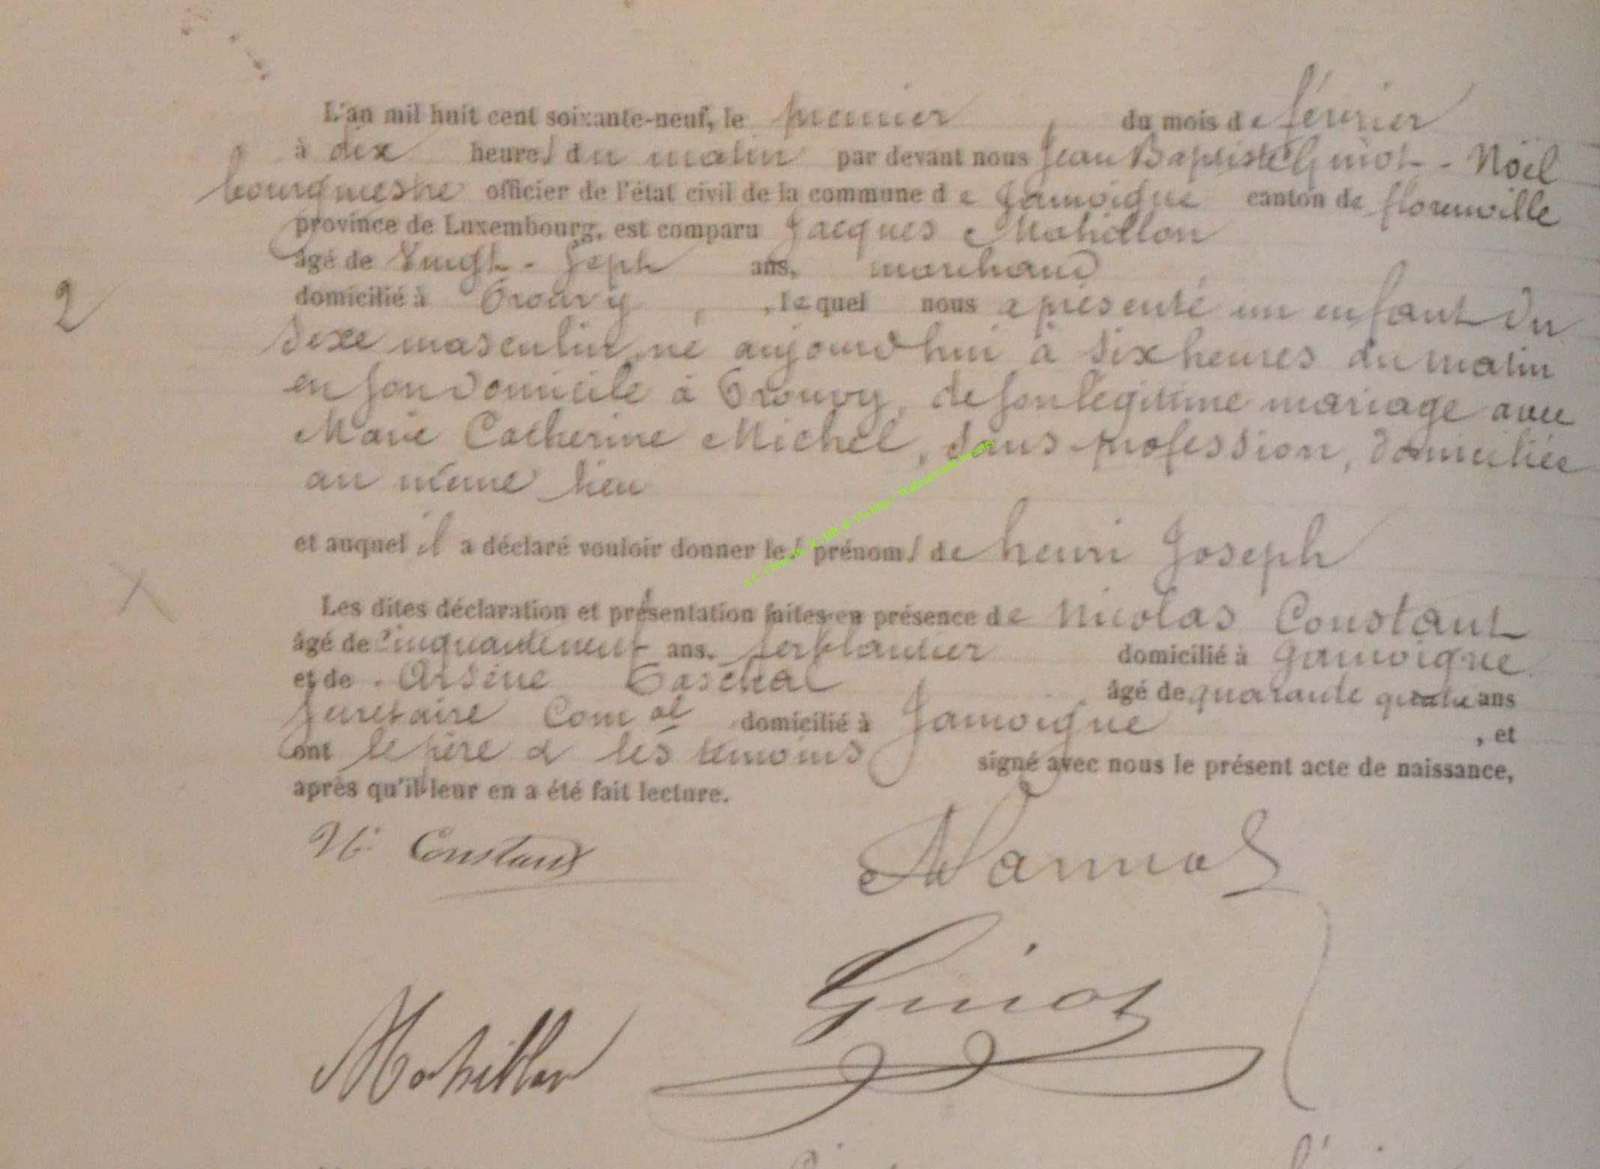 L'an mil huit cent soixante-neuf, le premier du mois de février
à dix heures du matin par devant nous Jean Baptiste Guiot - Noël
bourgmestre officier de l'état civil de la commune de Jamoigne canton de florenville
province de Luxembourg, est comparu Jacques Mohillon
âgé de Vingt-Sept ans, marchand
domicilié à Prouvy, lequel nous a présenté un enfant du
2
sexe masculin, né aujourd'hui à six heures du matin
en son domicile à Prouvy, de son légitime mariage avec
Marie Catherine Michel, sans profession, domiciliée
au même lieu
et auquel il a déclaré vouloir donner les prénoms de henri Joseph
X
Les dites déclaration et présentation faites en présence de Nicolas Constant
âgé de cinquanteneuf ans, ferblantier domicilié à Jamoigne
et de Arsène âgé de quarante quatre ans
secrétaire Com al domicilié à Jamoigne, et
ont le père & les témoins signé avec nous le présent acte de naissance,
après qu'il leur en a été fait lecture.
N. Constant
Guiot
Mohillon